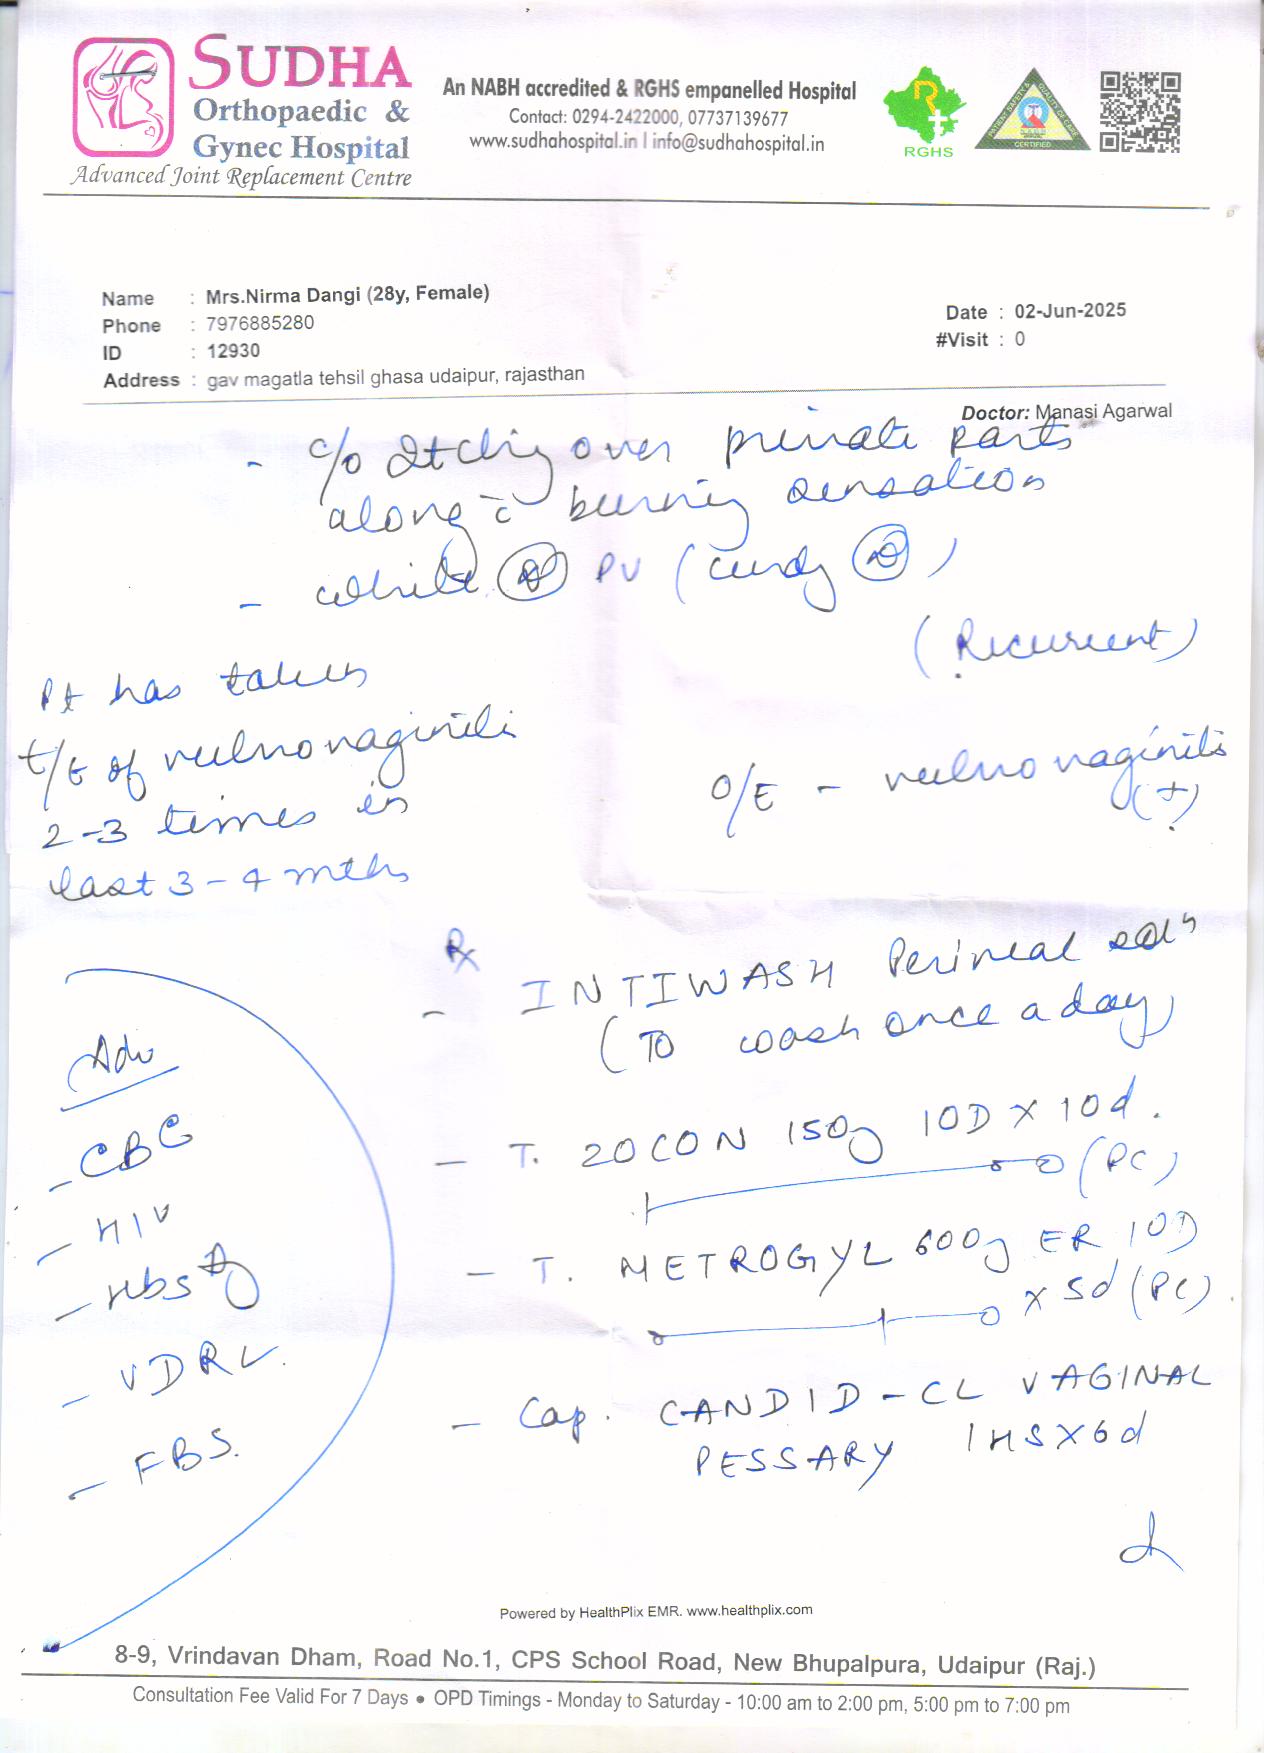 SUDHA
Orthopaedic &
Gynec Hospital
Advanced Joint Replacement Centre
An NABH accredited & RGHS empanelled Hospital
Contact: 0294-2422000, 07737139677
www.sudhahospital.in | info@sudhahospital.in
RGHS
PATIENT SAFETY & QUALITY OF CARE
NABH
CERTIFIED
Name : Mrs.Nirma Dangi (28y, Female)
Phone : 7976885280
ID : 12930
Address : gav magatla tehsil ghasa udaipur, rajasthan
Date : 02-Jun-2025
#Visit : 0
Doctor: Manasi Agarwal
- c/o Itching over private parts
along c̄ burning sensation
- white PV (curdy )
(Recurrent)
Pt has taken
t/t of vulvovaginitis
2-3 times in
last 3-4 mths
O/E - vulvovaginitis
(+)
Rx
- INTIWASH Perineal soln
(To wash once a day)
- T. ZOCON 150g 1OD X 10d.
(PC)
- T. METROGYL 600g ER 1OD
x 5d (PC)
- Cap. CANDID-CL VAGINAL
PESSARY 1HSX6d
Adv
- CBC
- HIV
- HbsAg
- VDRL.
- FBS.
Powered by HealthPlix EMR. www.healthplix.com
8-9, Vrindavan Dham, Road No.1, CPS School Road, New Bhupalpura, Udaipur (Raj.)
Consultation Fee Valid For 7 Days • OPD Timings - Monday to Saturday - 10:00 am to 2:00 pm, 5:00 pm to 7:00 pm